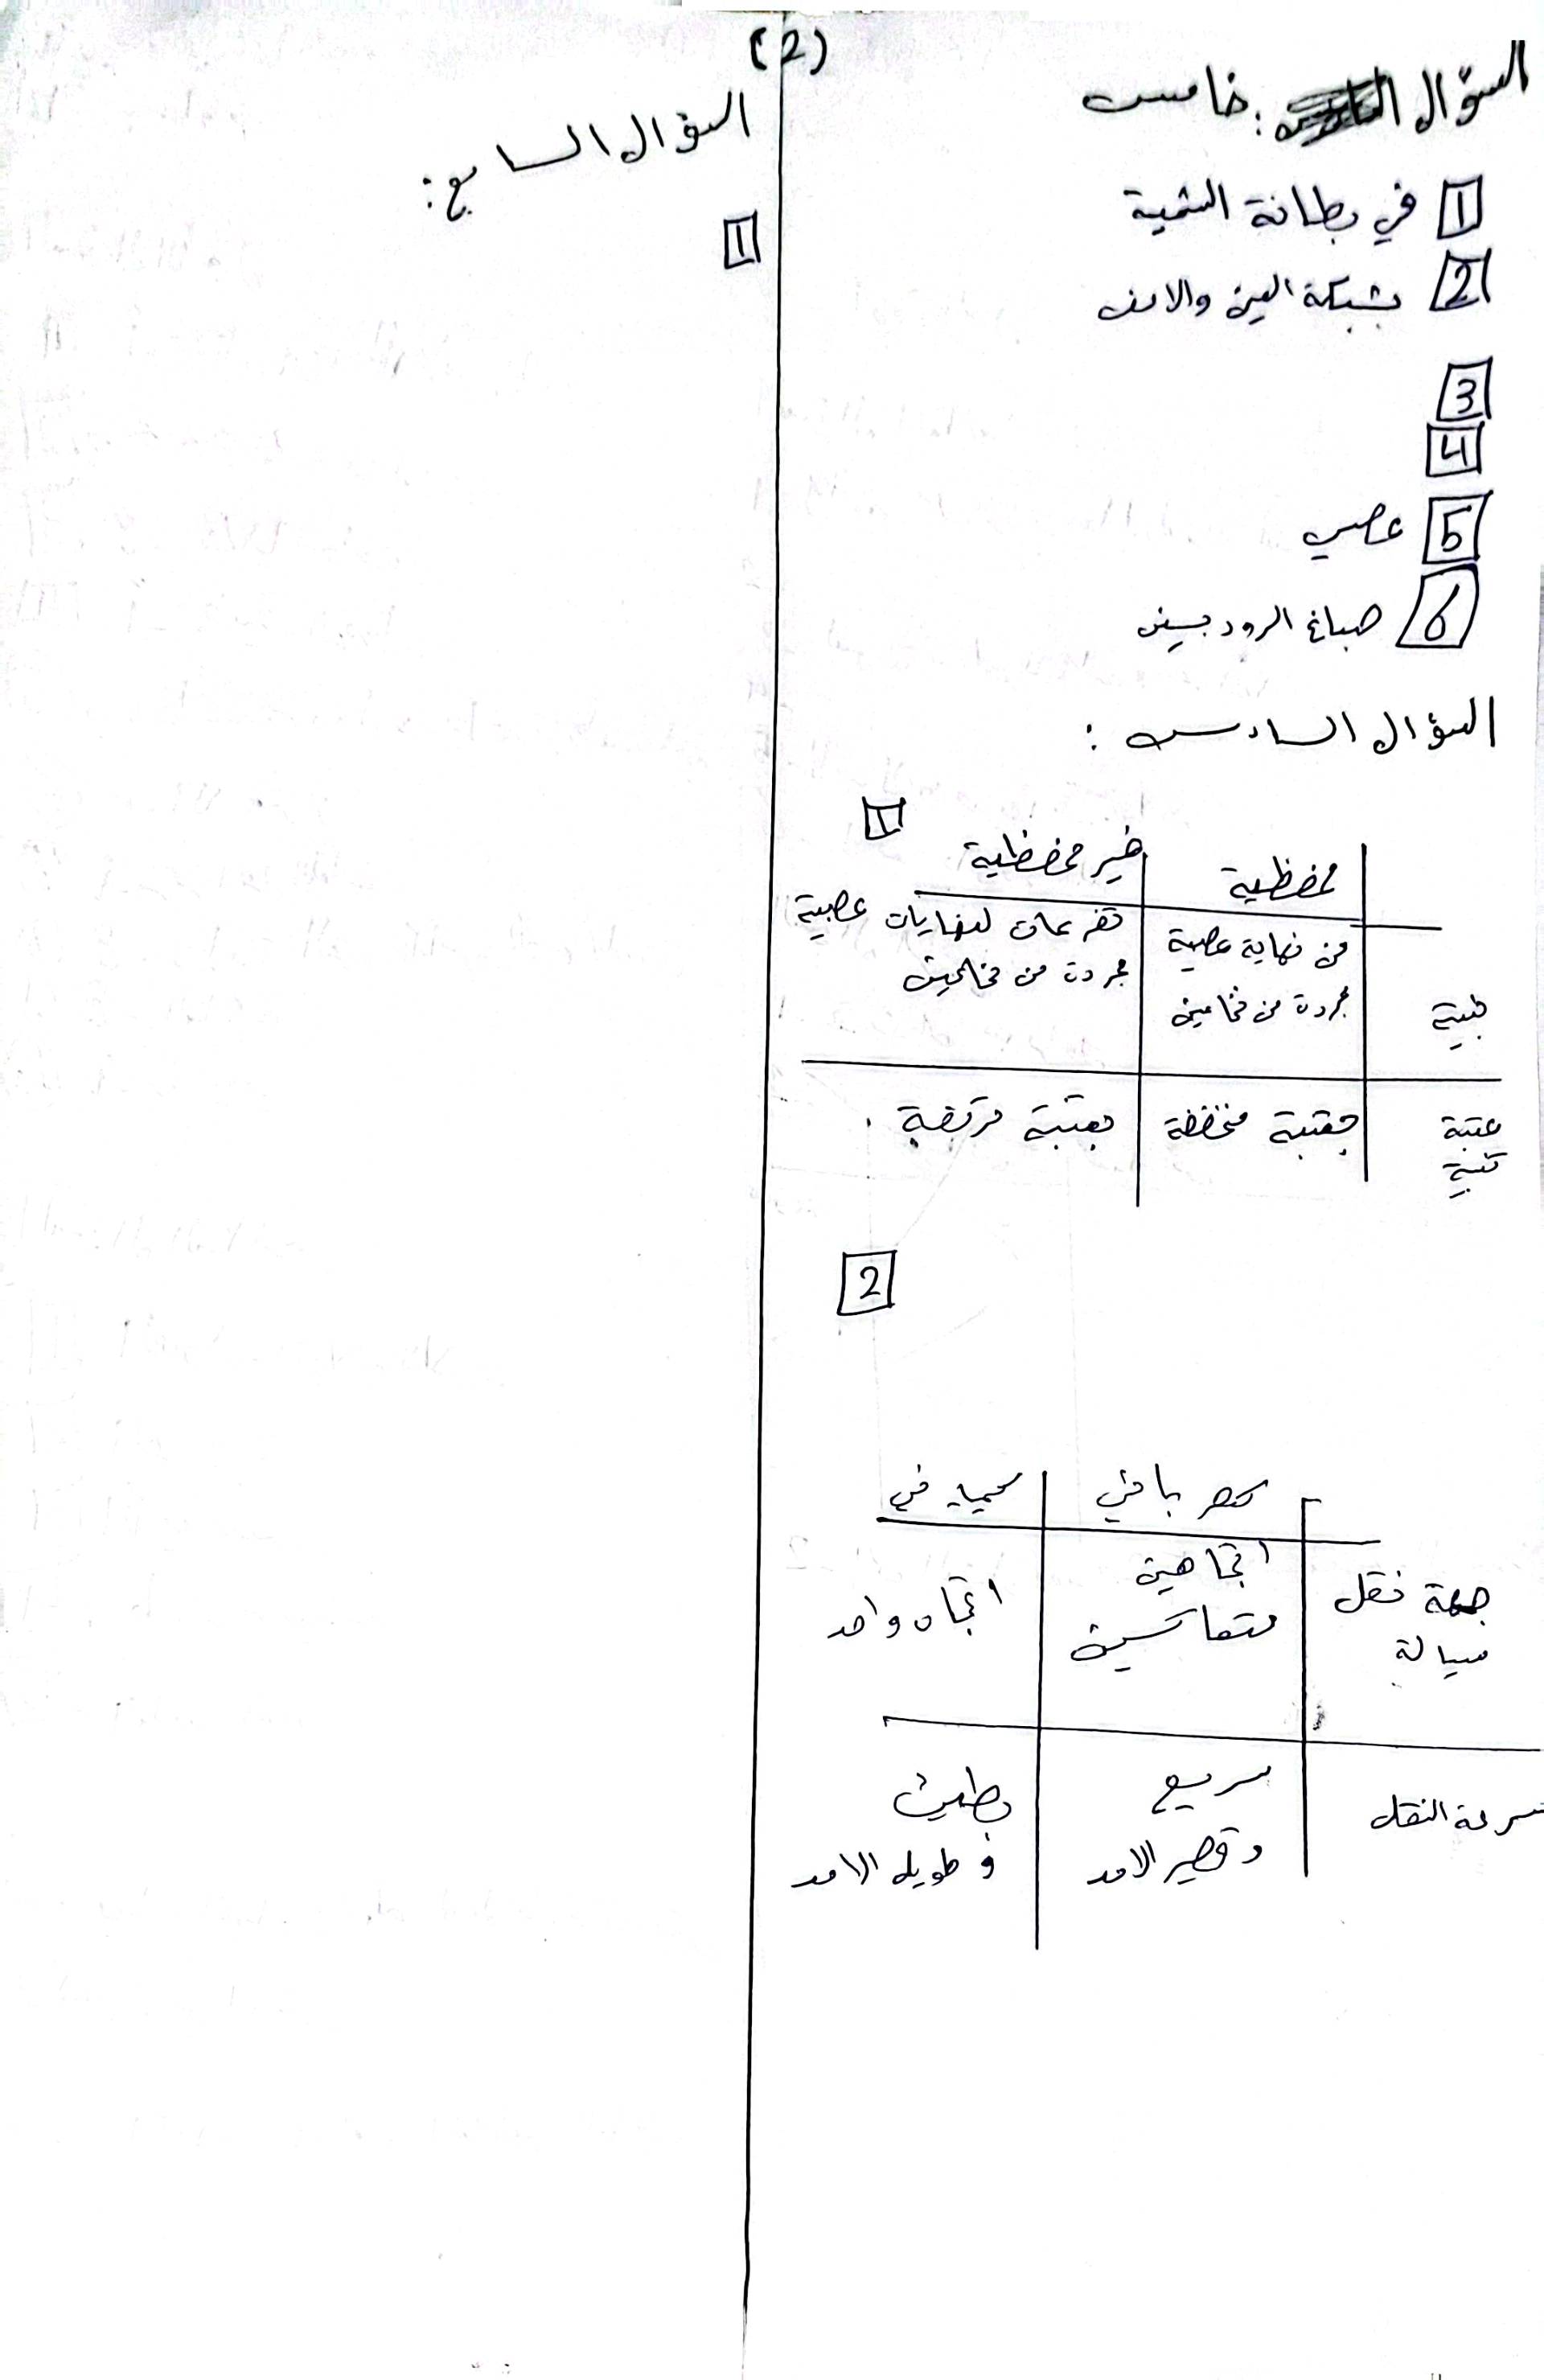 (2)
السؤال خامس:
1 في بطانة الشمية
2 بشبكة العين والانف
3
4
5 عصبي
6 صباغ الرودبسين
السؤال السادس:
1
محفظية | غير محفظية
بنية | من نهاية عصبية مجردة من نخاعين | تفرعات لنهايات عصبية مجردة من نخاعين
عتبة تنبيه | بعتبة منخفضة | بعتبة مرتفعة.
2
كهربائي | كيميائي
جهة نقل سيالة | اتجاهين متعاكسين | اتجاه واحد
سرعة النقل | سريع وقصير الامد | بطيئ وطويل الامد
السؤال السابع:
1